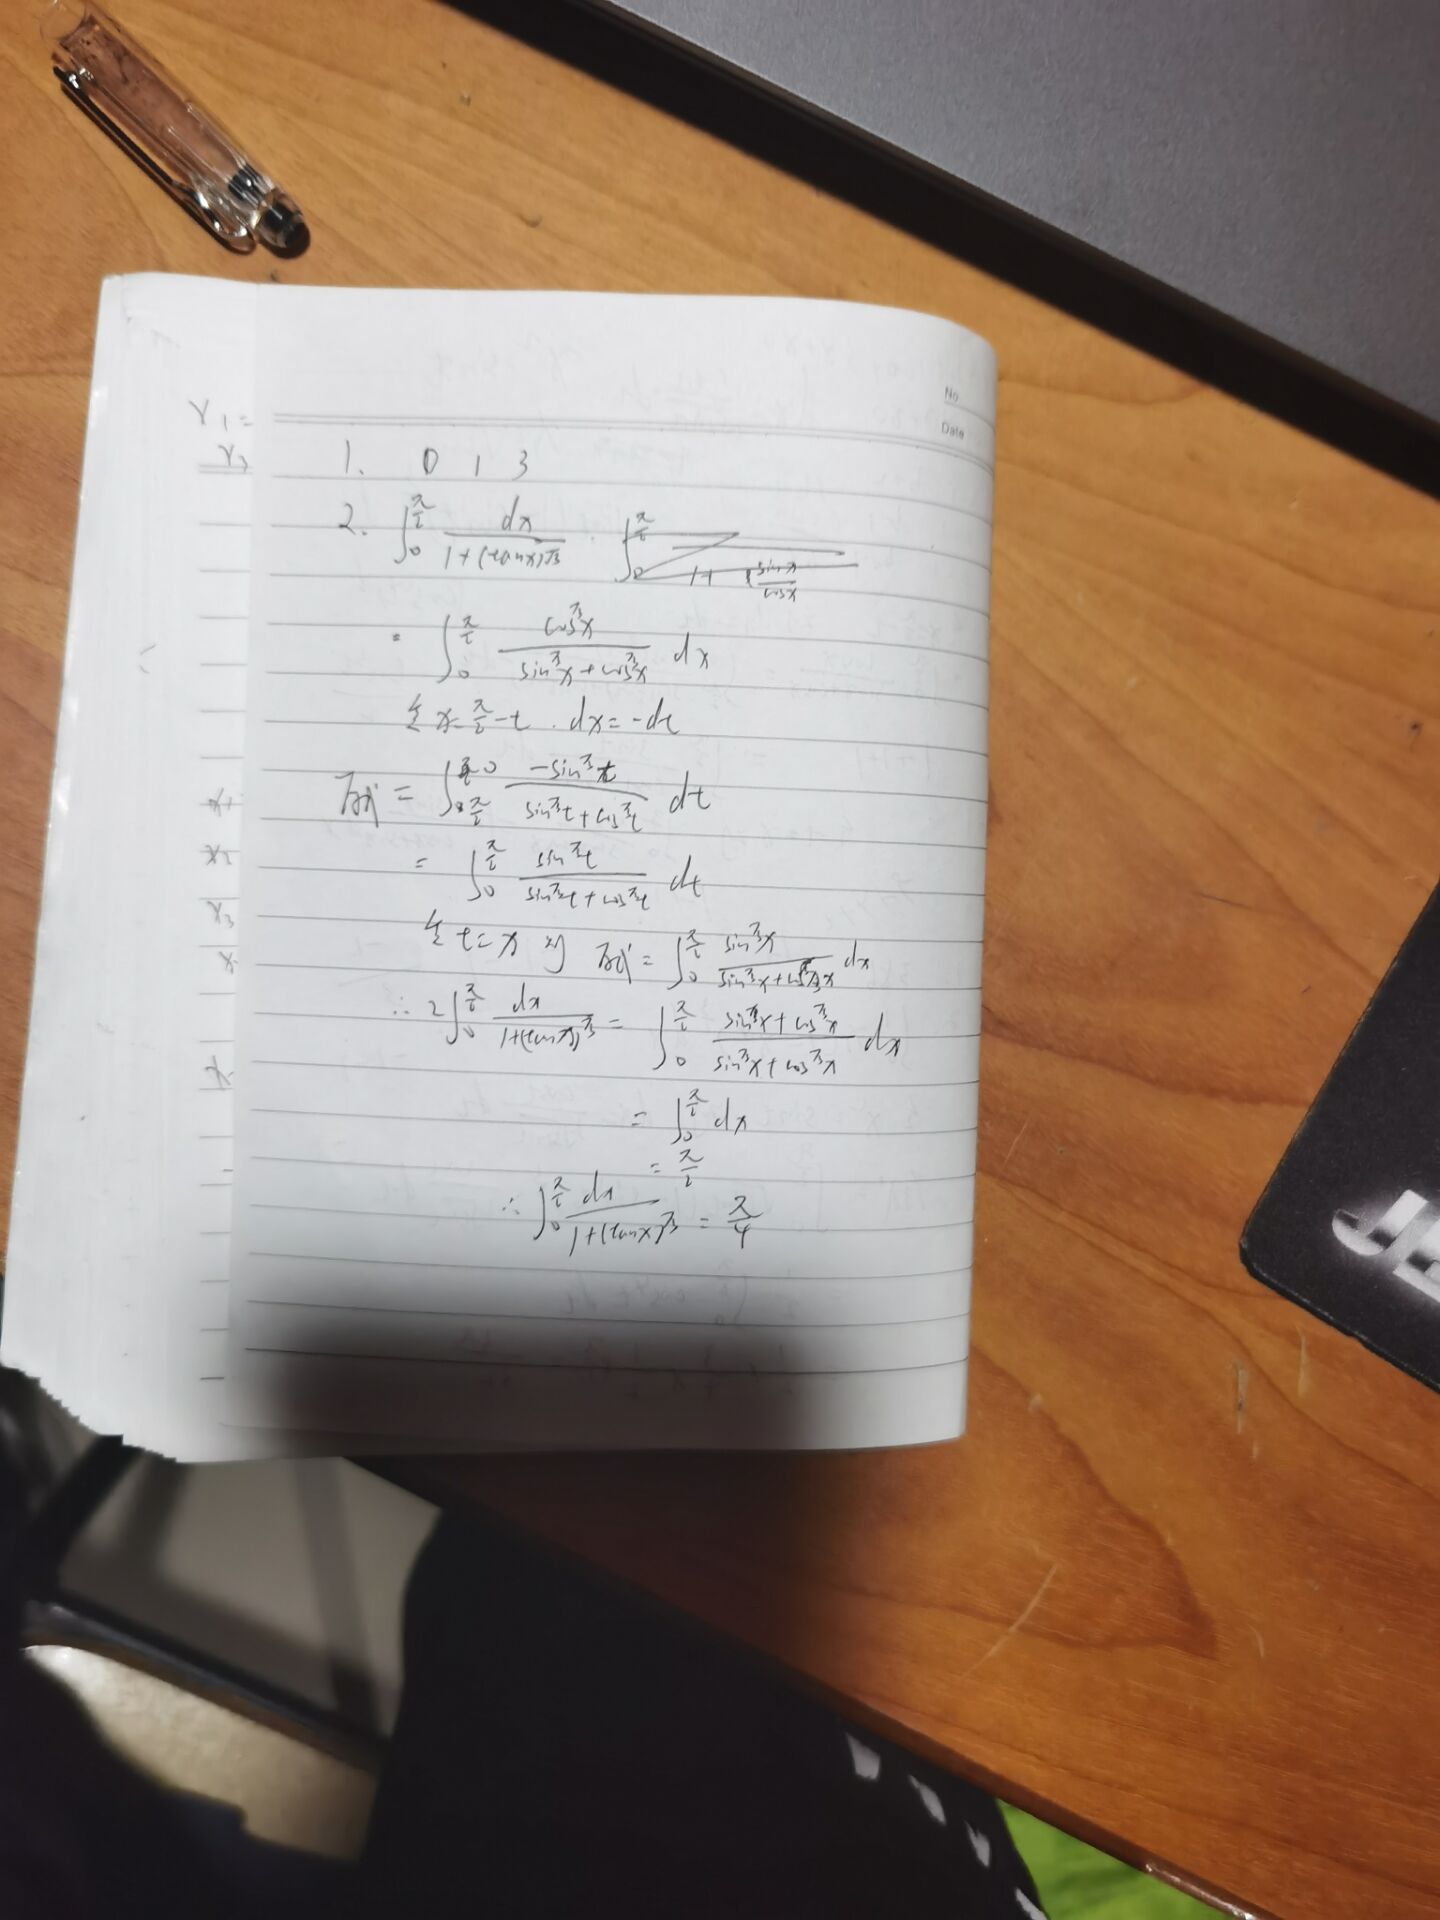 No
Date
1. 0 1 3
2. ∫₀^{π/2} dx / (1+(tanx)^{√3})
= ∫₀^{π/2} cos^{√3}x / (sin^{√3}x + cos^{√3}x) dx
令 x = π/2 - t . dx = -dt
原式 = ∫_{π/2}^{0} -sin^{√3}t / (sin^{√3}t + cos^{√3}t) dt
= ∫₀^{π/2} sin^{√3}t / (sin^{√3}t + cos^{√3}t) dt
令 t = x 则 原式 = ∫₀^{π/2} sin^{√3}x / (sin^{√3}x + cos^{√3}x) dx
∴ 2∫₀^{π/2} dx / (1+(tanx)^{√3}) = ∫₀^{π/2} (sin^{√3}x + cos^{√3}x) / (sin^{√3}x + cos^{√3}x) dx
= ∫₀^{π/2} dx
= π/2
∴ ∫₀^{π/2} dx / (1+(tanx)^{√3}) = π/4